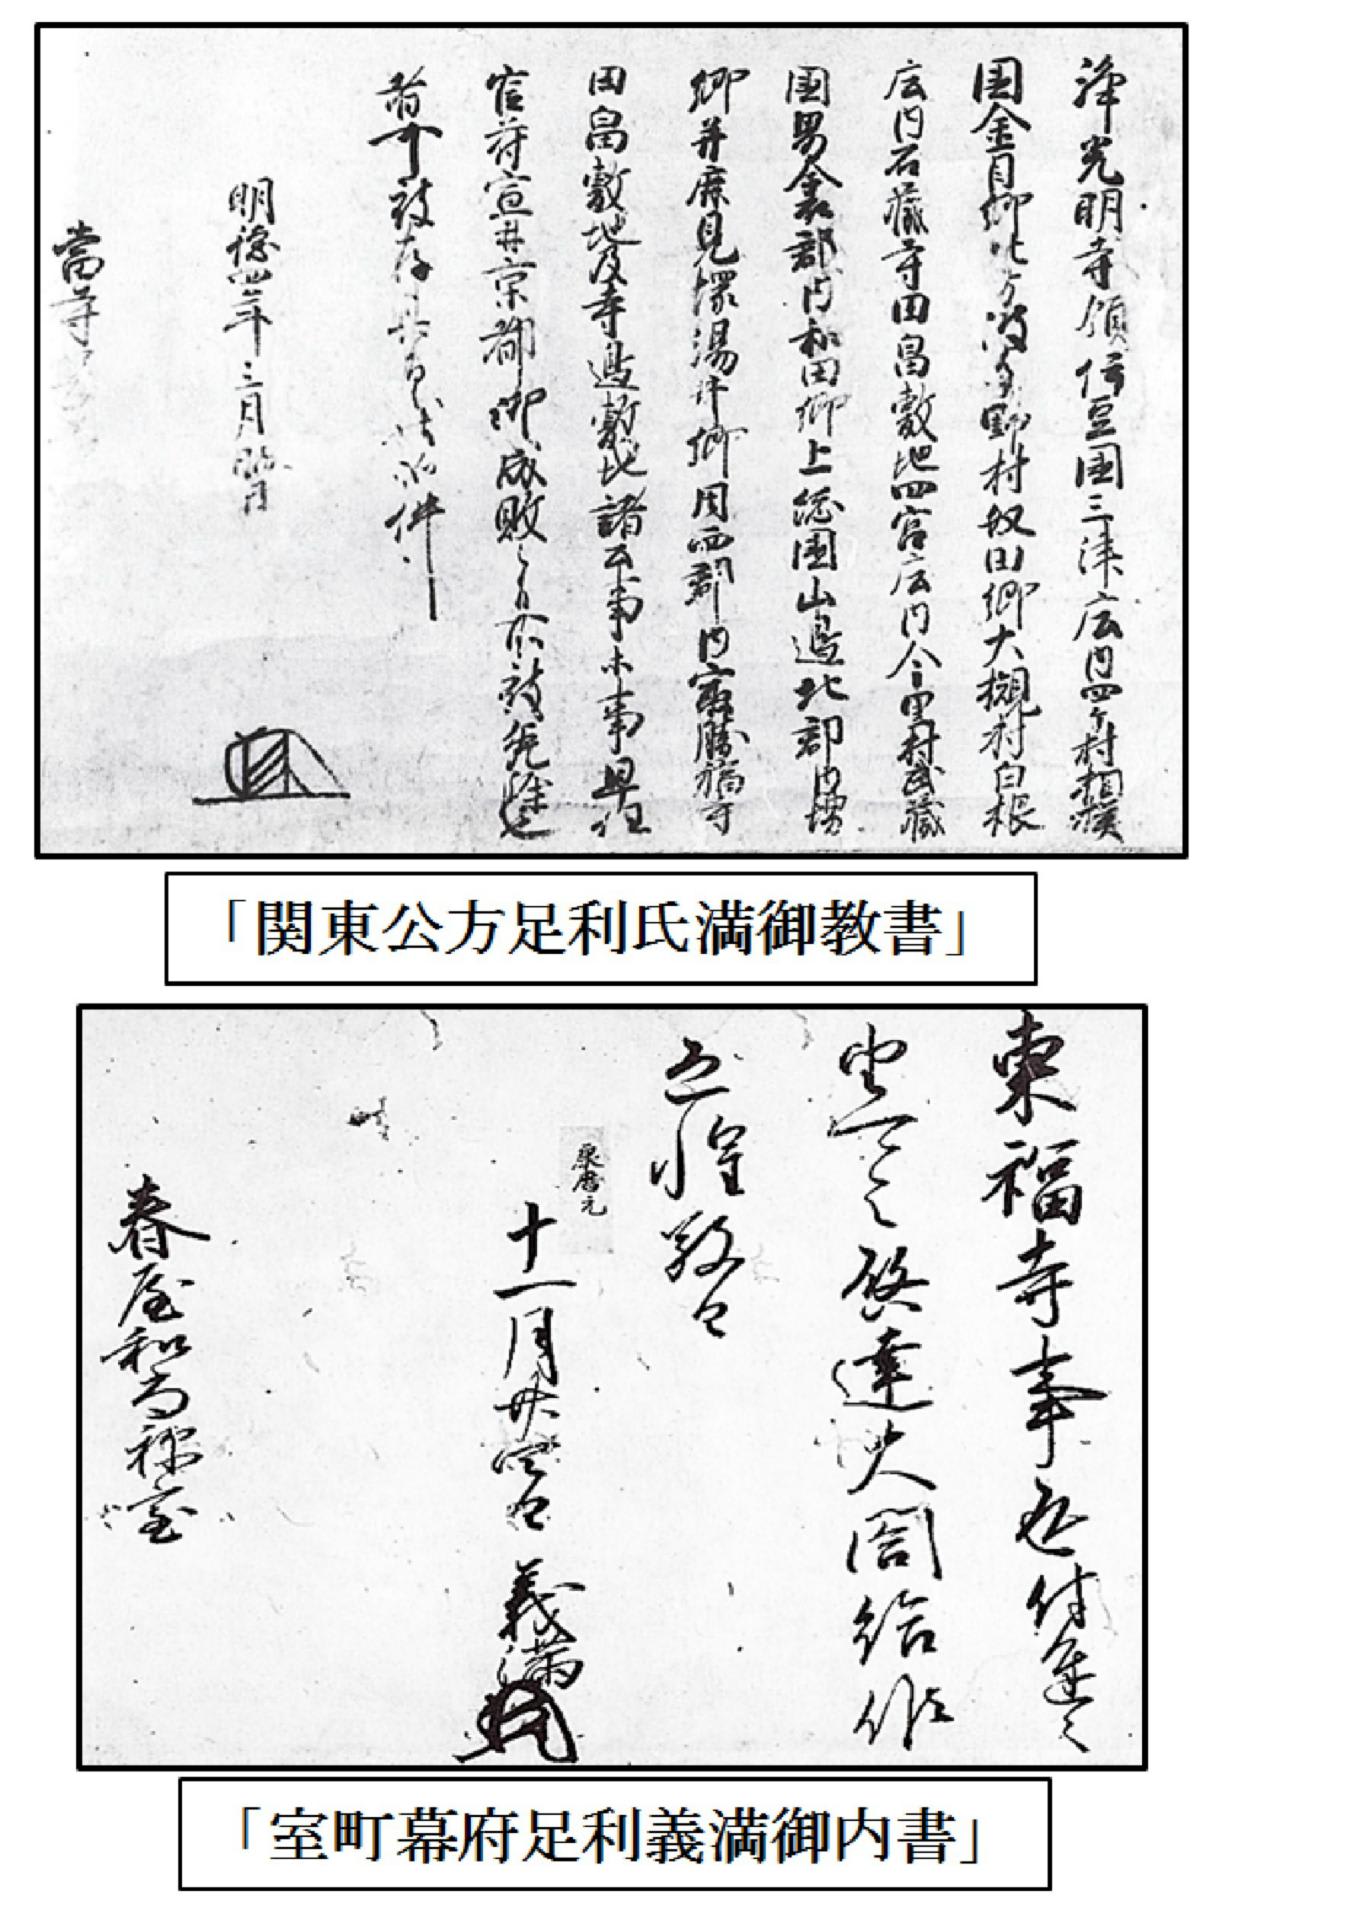 浄光明寺領伊豆国三津庄内四ケ村相模
国金目郷北方 波多野村奴田郷大槻村白根
庄内石蔵寺田畠敷地四宮庄内今里村武蔵
国男衾郡内和田郷上総国山邊北郡内堺
郷并麻見塚湯井郷周西郡内最勝福寺
田畠敷地及寺邊敷地諸公事等事早任
官符宣并京都御成敗之旨所被免除也
可被存其旨之状如件
明徳四年三月
當寺
「関東公方足利氏満御教書」
東福寺事返付進之
達大閤給
之惶敬白
康暦元
十一月廿四日 義満
春屋和尚禅室
「室町幕府足利義満御内書」